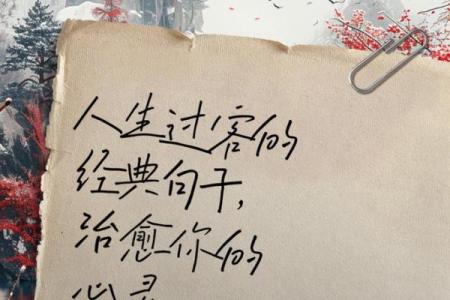 人生过客的
经典句子,
治愈你的
心灵